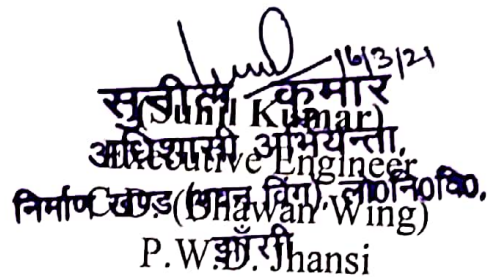 16/3/21
सुनील कुमार
(Sunil Kumar)
अधिशासी अभियन्ता,
Executive Engineer
निर्माण खण्ड (भवन विंग), लो०नि०वि०,
C.D. (Bhawan Wing)
झाँसी
P.W.D. Jhansi